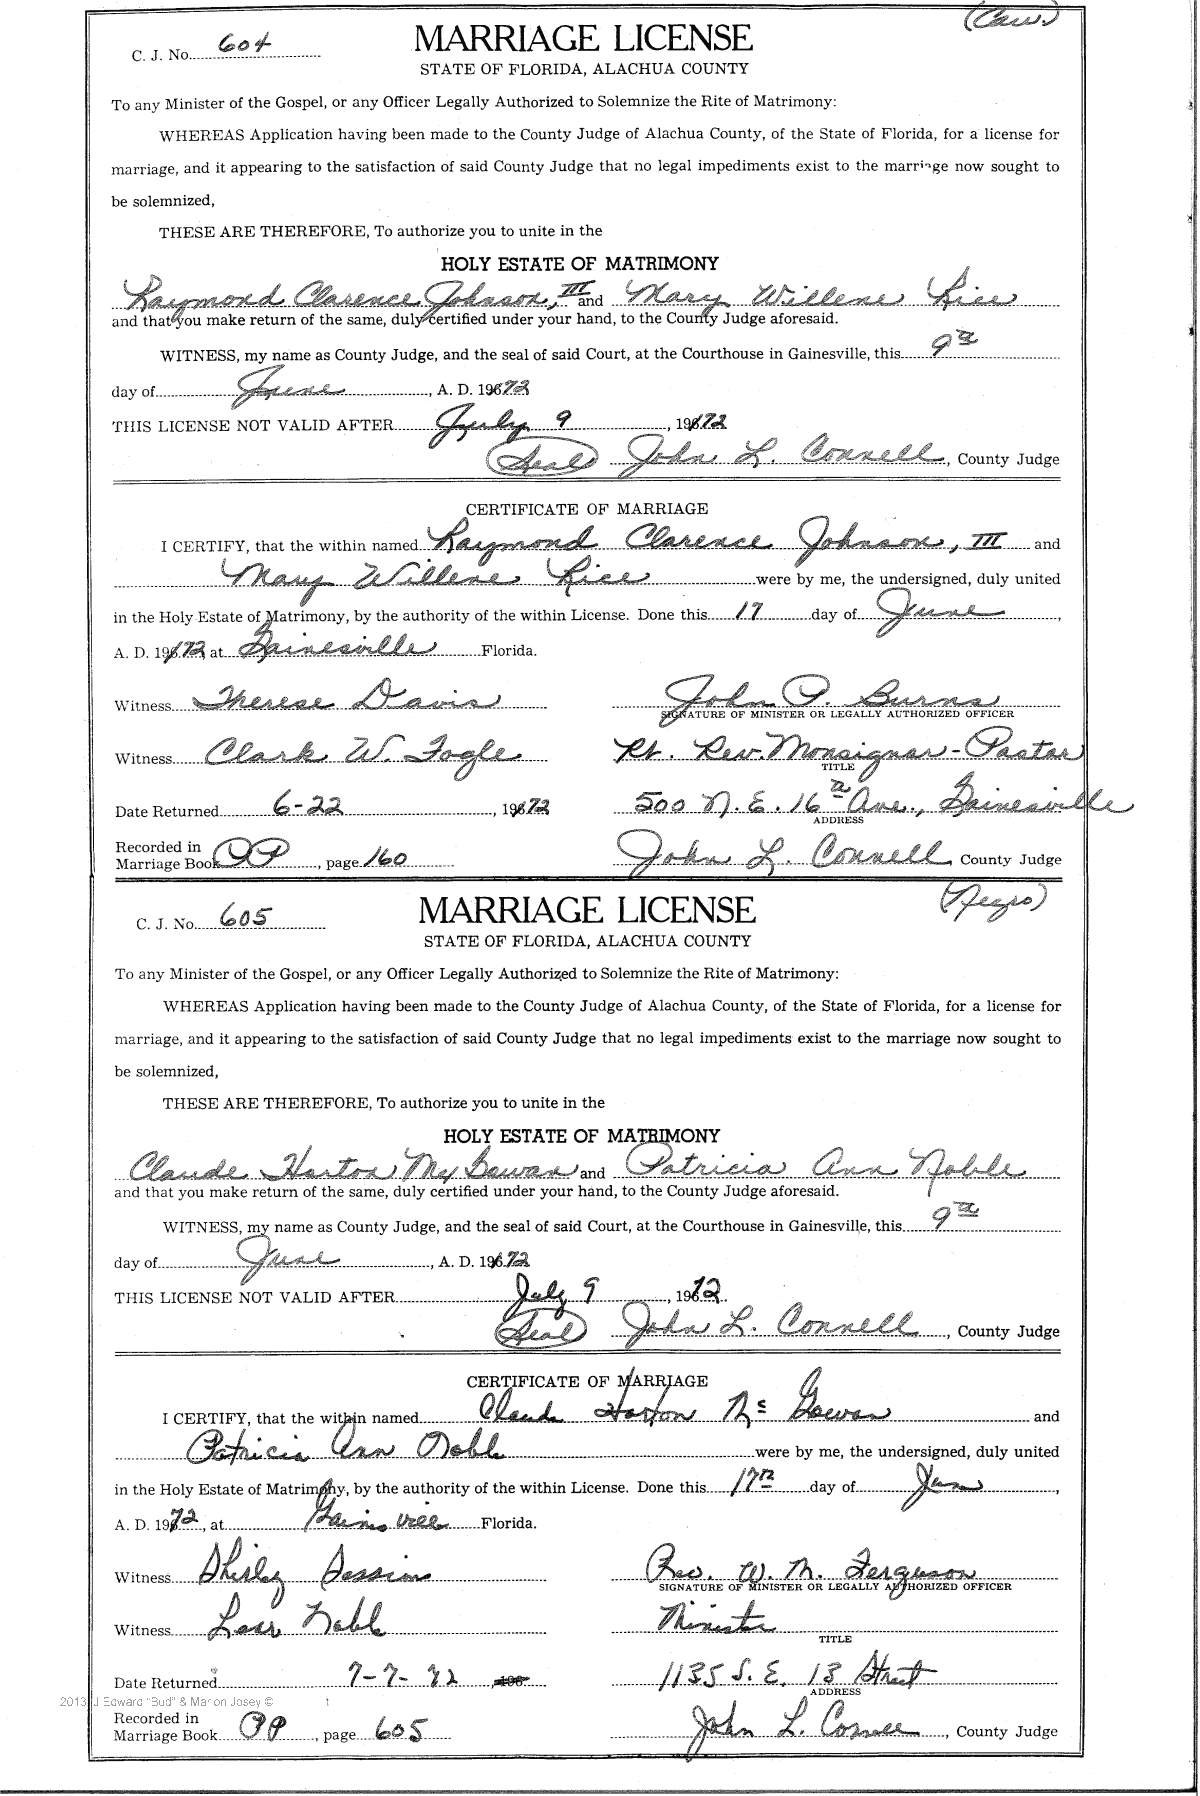 (Cau.)
C. J. No. 604
MARRIAGE LICENSE
STATE OF FLORIDA, ALACHUA COUNTY
To any Minister of the Gospel, or any Officer Legally Authorized to Solemnize the Rite of Matrimony:
WHEREAS Application having been made to the County Judge of Alachua County, of the State of Florida, for a license for
marriage, and it appearing to the satisfaction of said County Judge that no legal impediments exist to the marriage now sought to
be solemnized,
THESE ARE THEREFORE, To authorize you to unite in the
HOLY ESTATE OF MATRIMONY
Raymond Clarence Johnson, III and Mary Willene Rice
and that you make return of the same, duly certified under your hand, to the County Judge aforesaid.
WITNESS, my name as County Judge, and the seal of said Court, at the Courthouse in Gainesville, this 9th
day of June, A. D. 1972
THIS LICENSE NOT VALID AFTER July 9, 1972
(Seal) John L. Connell, County Judge
CERTIFICATE OF MARRIAGE
I CERTIFY, that the within named Raymond Clarence Johnson, III and
Mary Willene Rice were by me, the undersigned, duly united
in the Holy Estate of Matrimony, by the authority of the within License. Done this 17 day of June,
A. D. 1972 at Gainesville Florida.
Witness Therese Davis John P. Burns
SIGNATURE OF MINISTER OR LEGALLY AUTHORIZED OFFICER
Witness Clark W. Fogle Rt. Rev. Monsignor - Pastor
TITLE
Date Returned 6-22, 1972 500 N. E. 16th Ave., Gainesville
ADDRESS
Recorded in
Marriage Book PP, page 160 John L. Connell County Judge
(Negro)
C. J. No. 605
MARRIAGE LICENSE
STATE OF FLORIDA, ALACHUA COUNTY
To any Minister of the Gospel, or any Officer Legally Authorized to Solemnize the Rite of Matrimony:
WHEREAS Application having been made to the County Judge of Alachua County, of the State of Florida, for a license for
marriage, and it appearing to the satisfaction of said County Judge that no legal impediments exist to the marriage now sought to
be solemnized,
THESE ARE THEREFORE, To authorize you to unite in the
HOLY ESTATE OF MATRIMONY
Claude Horton McGowan and Patricia Ann Noble
and that you make return of the same, duly certified under your hand, to the County Judge aforesaid.
WITNESS, my name as County Judge, and the seal of said Court, at the Courthouse in Gainesville, this 9th
day of June, A. D. 1972
THIS LICENSE NOT VALID AFTER July 9, 1972
(Seal) John L. Connell, County Judge
CERTIFICATE OF MARRIAGE
I CERTIFY, that the within named Claude Horton Mc Gowan and
Patricia Ann Noble were by me, the undersigned, duly united
in the Holy Estate of Matrimony, by the authority of the within License. Done this 17th day of June,
A. D. 1972, at Gainesville Florida.
Witness Shirley Sessions Rev. W. M. Ferguson
SIGNATURE OF MINISTER OR LEGALLY AUTHORIZED OFFICER
Witness Noble Minister
TITLE
Date Returned 7-7-72 1135 S. E. 13 Street
ADDRESS
2013 J Edward "Bud" & Marion Josey ©
Recorded in
Marriage Book PP, page 605 John L. Connell, County Judge